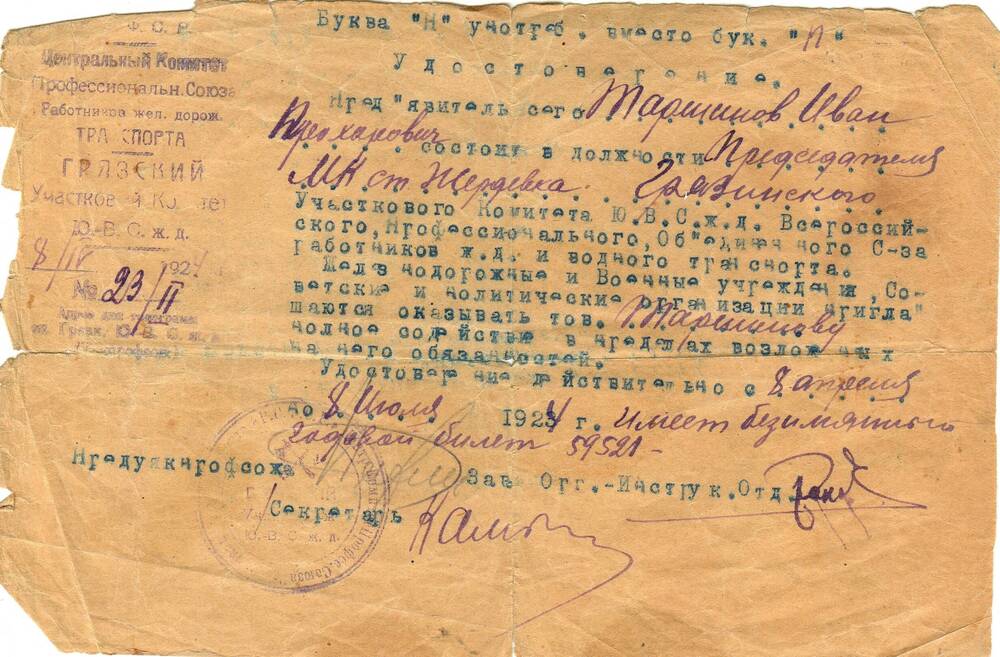 Буква "Н" употреб. вместо бук. "П"
Ф. С. Р.
Центральный Комитет
Профессиональн. Союза
Работников жел. дорож.
ТРАНСПОРТА
ГРЯЗСКИЙ
Участковый Комитет
Ю.-В. С. ж. д.
8/IV 1924 г.
№ 23/II
Адрес для телеграмм
Удостоверение.
Нред"явитель сего Таршинов Иван
состоит в должности Председателя
МК ст Жердевка. Грязинского
Участкового Комитета Ю.В.С.ж.д. Всероссий-
ского, Нрофессионального, Об"единенного С-за
работников ж.д. и водного транспорта.
Железнодорожные и Военные учреждения, Со-
ветские и нолитические организации нригла"
шаются оказывать тов. Таршинову
нолное содействие в нределах возложенных
на него обязанностей.
Удостоверение действительно с 8 апреля
но 8 Июля 1924 г. имеет безимянный
годовой билет 59521 -
Нредучкнрофсожа
Зав Орг.-Инструк. Отд.
Секретарь
Ю.-В. С. ж. д.